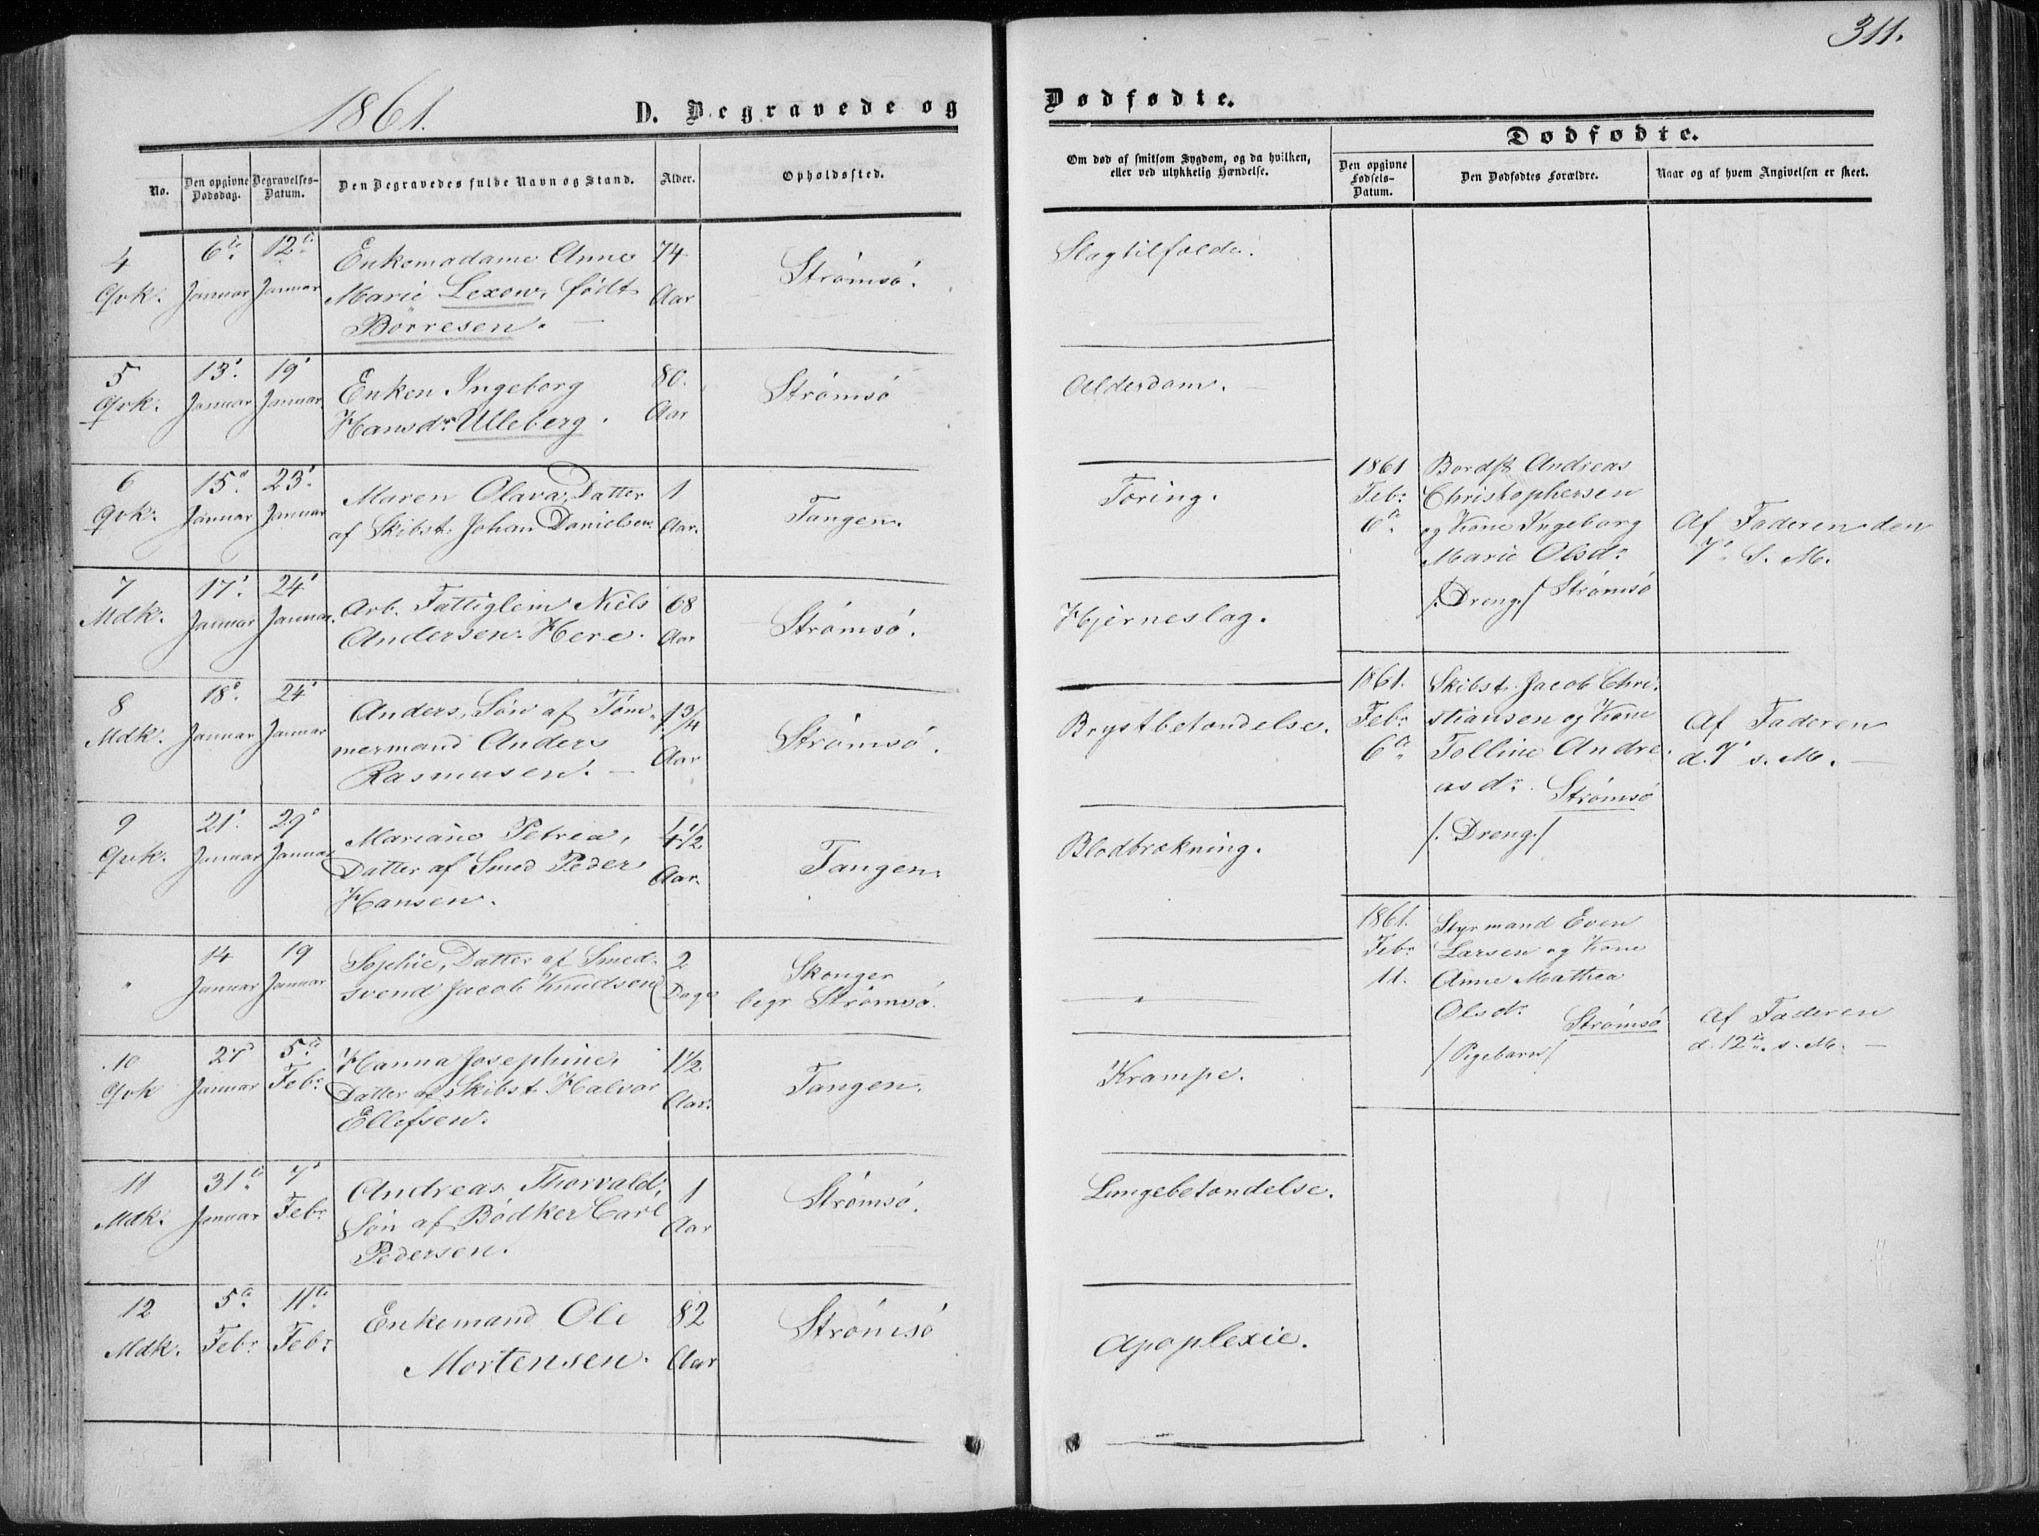 311.
1861.
D. Begravede og
Dødfødte.
No.
Den opgivne Dødsdag.
Begravelses-Datum.
Den Begravedes fulde Navn og Stand.
Alder.
Opholdssted.
Om død af smitsom Sygdom, og da hvilken,
eller ved ulykkelig Hændelse.
Dødfødte.
Den opgivne Fødsels-Datum.
Den Dødfødtes Forældre.
Naar og af hvem Angivelsen er skeet.
4 Qvk.
6te Januar
12te Januar
Enkemadame Anne
Marie Lexow, født
Børresen.
74 Aar
Strømsö.
Slagtilfælde.
5 Qvk.
13. Januar
19 Januar
Enken Ingeborg
Hansdr Ulleberg.
80. Aar
Strømsö
Alderdom.
6 Qvk.
15. Januar
23. Januar
Maren Olava, Datter
af Skibst. Johan Danielsen
1 Aar.
Tangen.
Tæring.
7 Mdk.
17. Januar
24 Januar
Arb. Fattiglem Niels
Andersen Here.
68 Aar
Strømsö.
Hjerneslag.
8 Mdk.
18. Januar
24 Januar
Anders, Søn af Tøm-
mermand Anders
Rasmusen.
1 3/4 Aar
Strømsö.
Brystbetændelse.
9 Qvk.
21. Januar
29 Januar
Mariane Petrea,
Datter af Smed Peder
Hansen.
4 1/2 Aar.
Tangen.
Blodbrækning.
"
14 Januar
19 Januar
Sophie, Datter af Smed-
svend Jacob Knudsen
2 Dage
Skouger
begr Strømsö.
"
10 Qvk
27 Januar
5te Febr
Hanna Josephine,
Datter af Skibst. Halvor
Ellefsen.
1 1/2 Aar.
Tangen.
Krampe.
11 Mdk.
31te Januar
7 Febr
Andreas Thorvald,
Søn af Bødker Carl
Pedersen.
1 Aar
Strømsö.
Lungebetændelse.
12 Mdk.
5te Febr
11te Febr
Enkemand Ole
Mortensen.
82 Aar
Strømsö
Apoplexie.
1861 Febr 6te
Andreas
Christophersen
og Kone Ingeborg
Marie Olsdr
/: Dreng :/ Strømsö
Af Faderen den
7. s. M.
1861. Febr 6te
Skibst. Jacob Chri-
stiansen og Kone
Tolline Andre-
asdr. Strømsö
/: Dreng :/
Af Faderen
d. 7 s. M.
1861. Febr 11.
Styrmand Even
Larsen og Kone
Anne Mathea
Olsdr Strømsö
/ Pigebarn /
Af Faderen
d. 12te s. M.